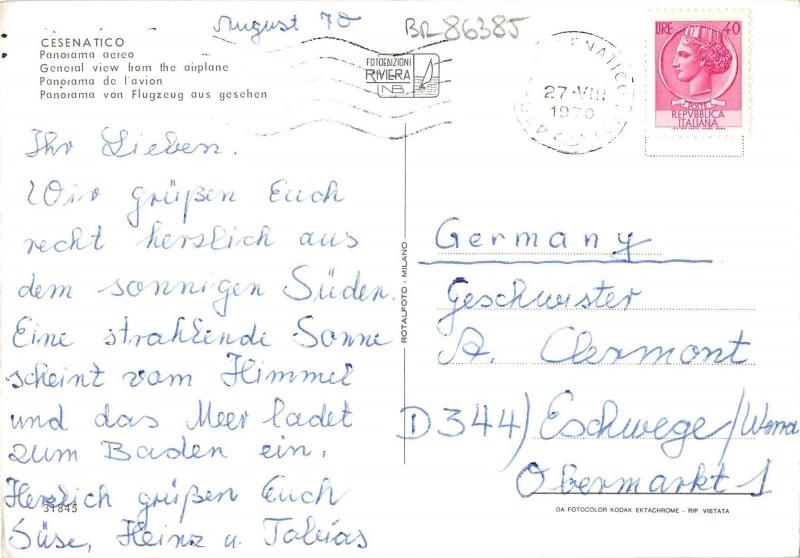 August 70
BR 86385
CESENATICO
Panorama aereo
General view from the airplane
Panorama de l'avion
Panorama von Flugzeug aus gesehen
FOTOEDIZIONI
RIVIERA
NB
CESENATICO
27-VIII
1970
LIRE 40
POSTE
REPVBBLICA
ITALIANA
Ihr Lieben.
Wir grüßen Euch
recht herzlich aus
dem sonnigen Süden.
Eine strahlende Sonne
scheint vom Himmel
und das Meer ladet
zum Baden ein.
Herzlich grüßen Euch
Süse, Heinz u. Tobias
31845
ROTALFOTO - MILANO
Germany
Geschwister
A. Clermont
D 344) Eschwege/Werra
Obermarkt 1
DA FOTOCOLOR KODAK EKTACHROME - RIP. VIETATA